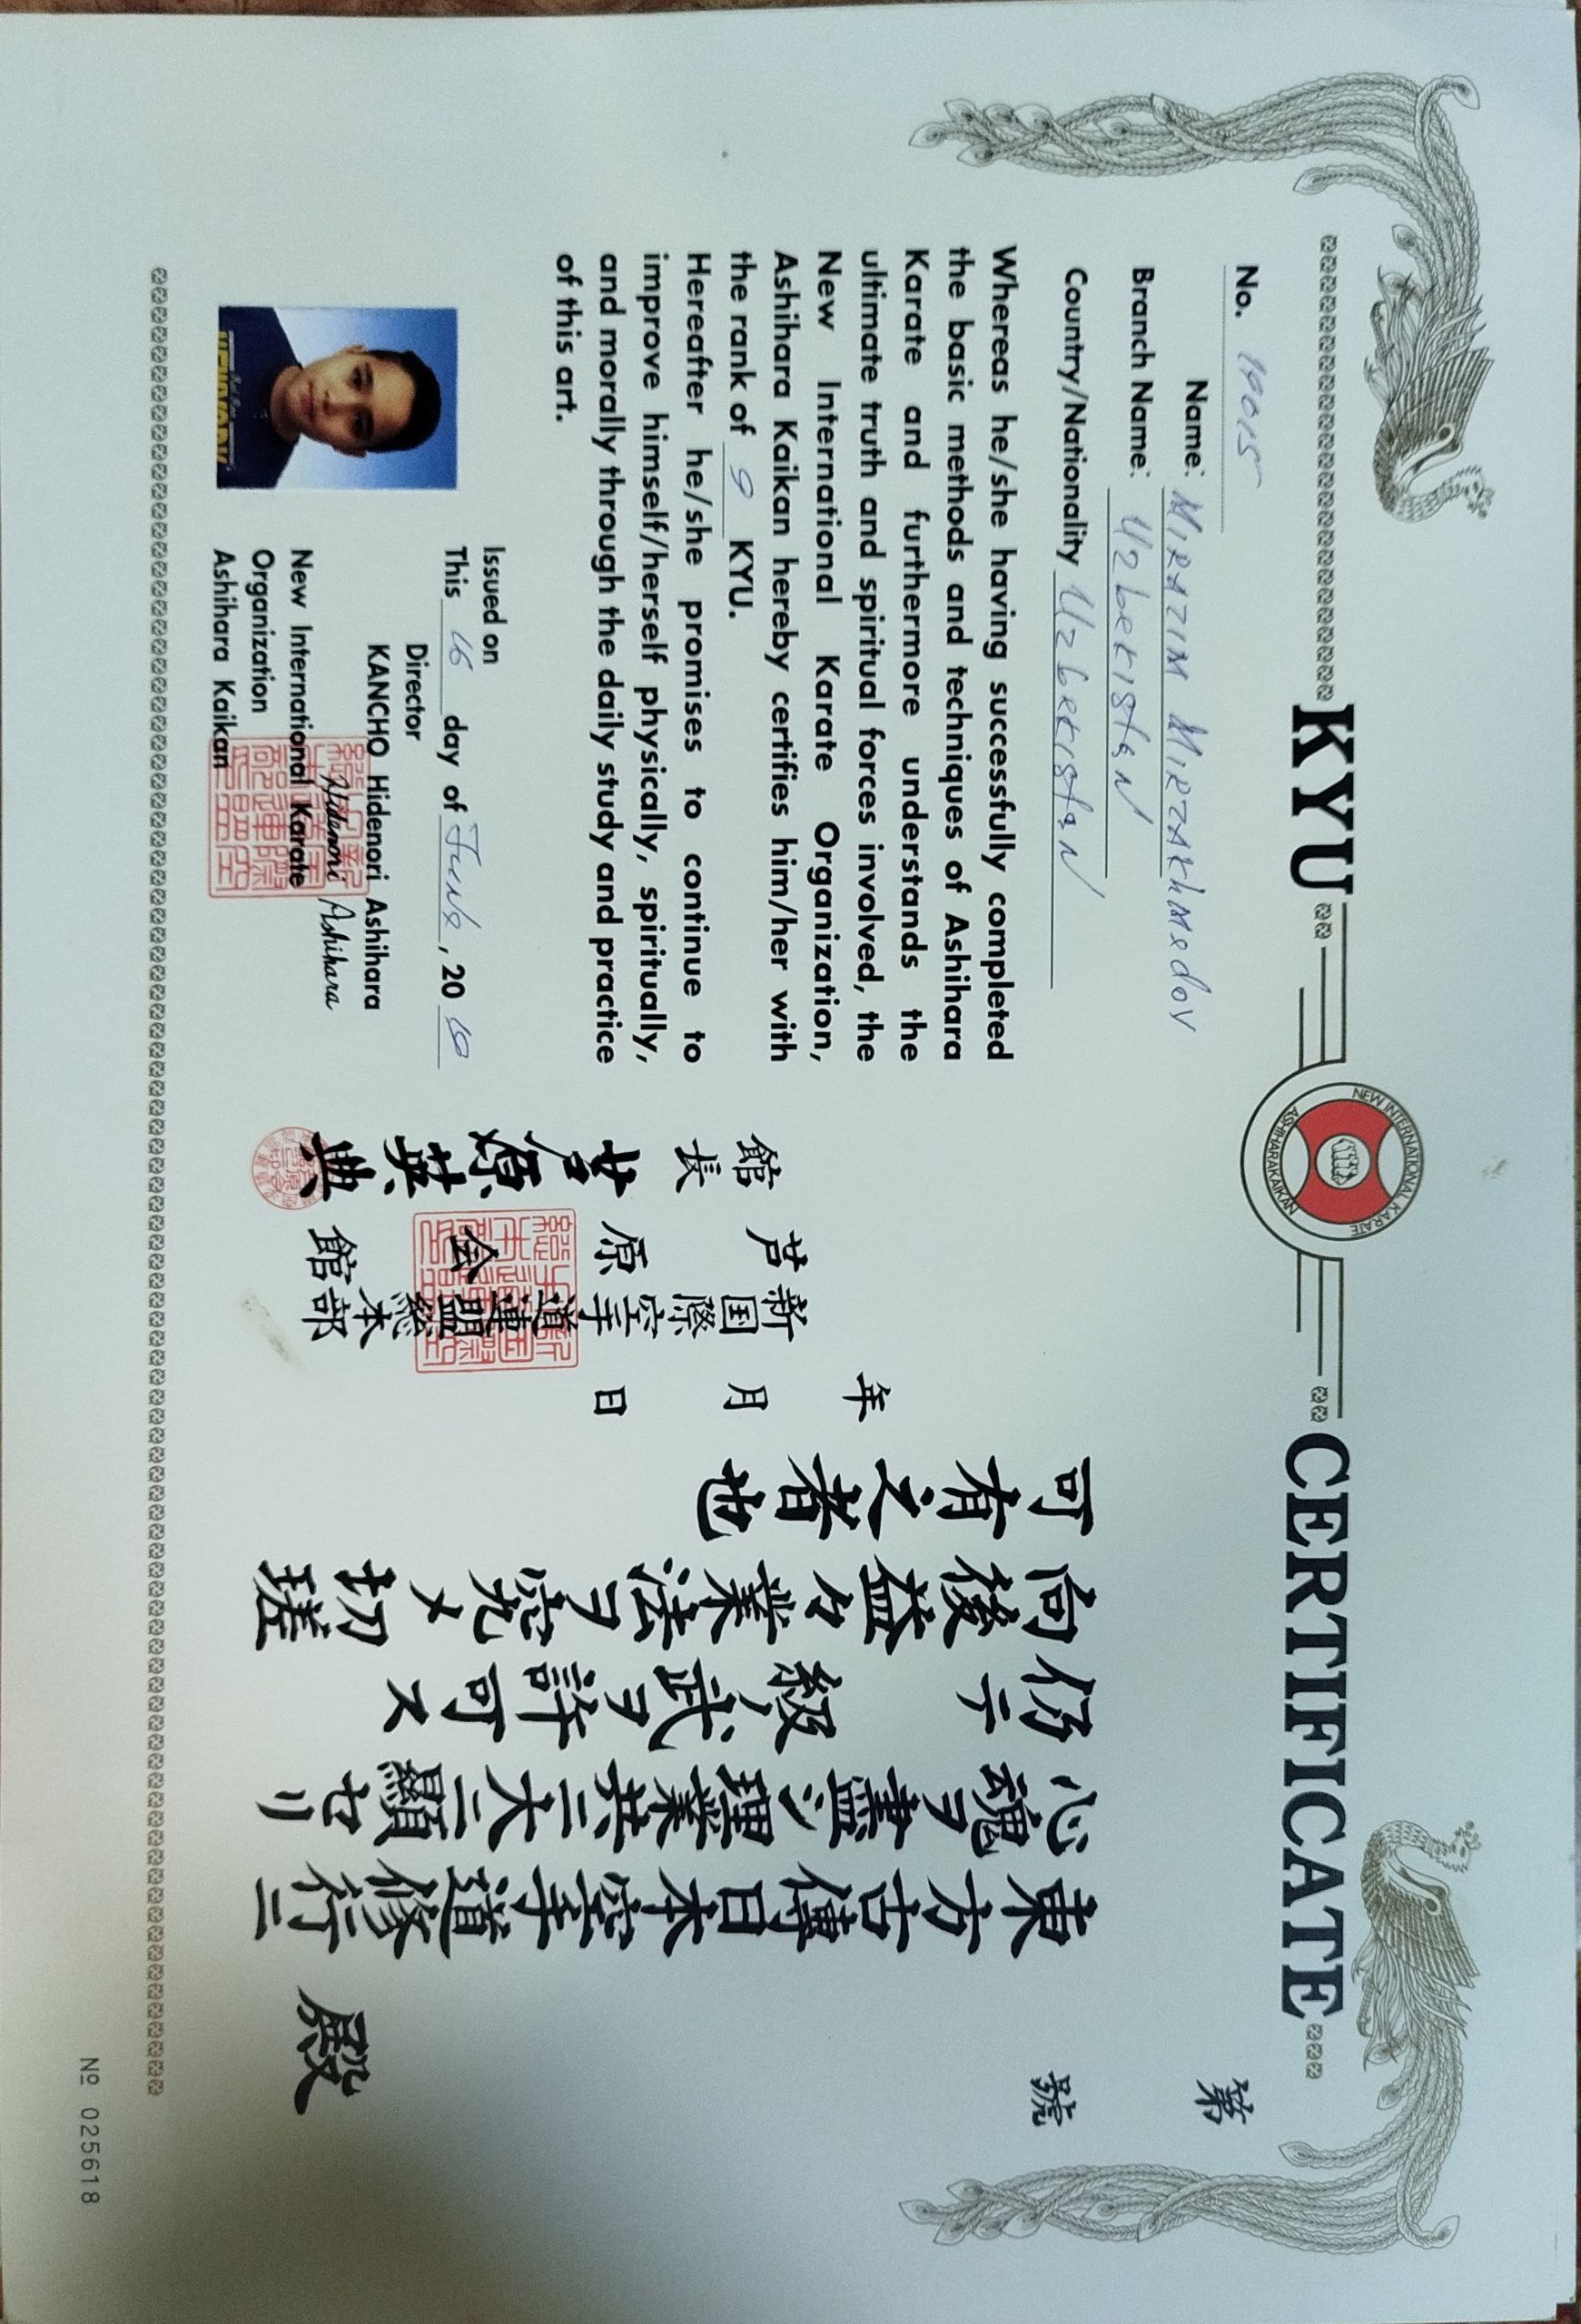 KYU CERTIFICATE
NEW INTERNATIONAL KARATE
ASHIHARAKAIKAN
No. 19015
Name: MIRAZIM MIRZAKhMedov
Branch Name: Uzbekistan
Country/Nationality Uzbekistan
Whereas he/she having successfully completed
the basic methods and techniques of Ashihara
Karate and furthermore understands the
ultimate truth and spiritual forces involved, the
New International Karate Organization,
Ashihara Kaikan hereby certifies him/her with
the rank of 9 KYU.
Hereafter he/she promises to continue to
improve himself/herself physically, spiritually,
and morally through the daily study and practice
of this art.
Issued on
This 16 day of June, 20 19
Director
KANCHO Hidenori Ashihara
Hidenori Ashihara
New International Karate
Organization
Ashihara Kaikan
第 號
殿
東方古傳日本空手道修行ニ
心魂ヲ盡シ理業共ニ大ニ顯セリ
仍テ 級ノ武ヲ許可ス
向後益々業法ヲ究メ切瑳
可有之者也
年 月 日
新国際空手道連盟総本部
芦原会館
館長 芦原英典
№ 025618